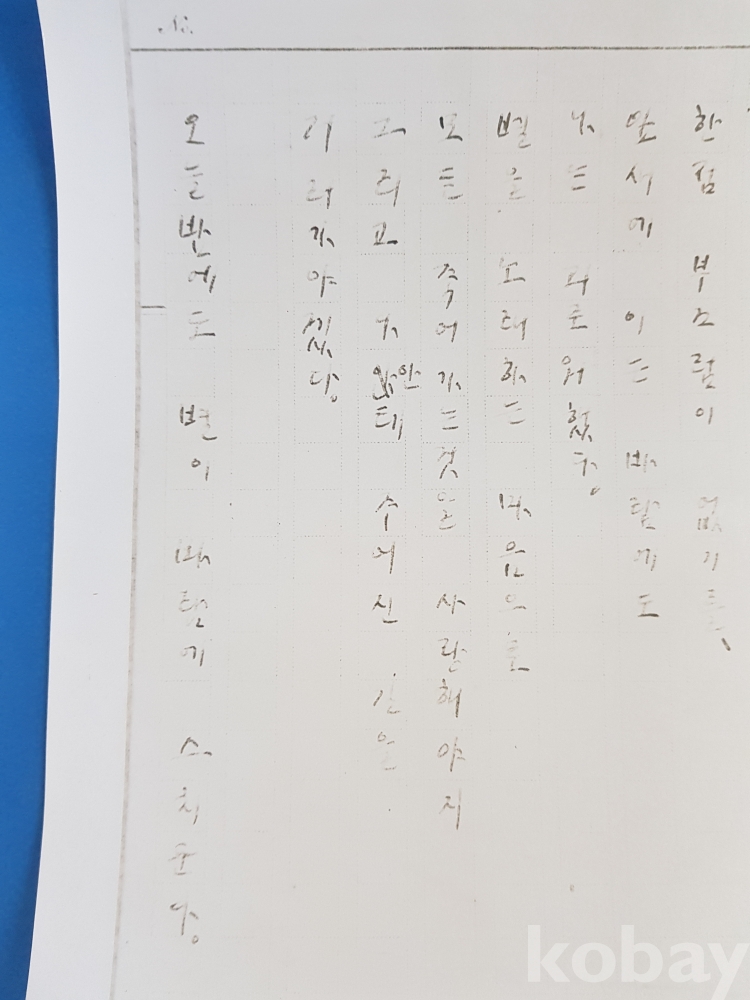 한점 부끄럼이 없기를、
잎새에 이는 바람에도
나는 괴로워했다.
별을 노래하는 마음으로
모든 죽어가는것을 사랑해야지
그리고 나안테 주어진 길을
거러가야겠다.
오늘밤에도 별이 바람에 스치운다.
kobay